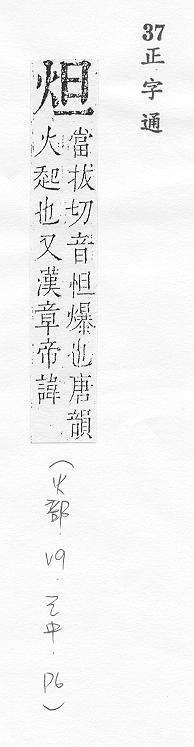 37正字通
炟
當拔切音怛爆也唐韻
火起也又漢章帝諱
(火部.V9.巳中.P6)